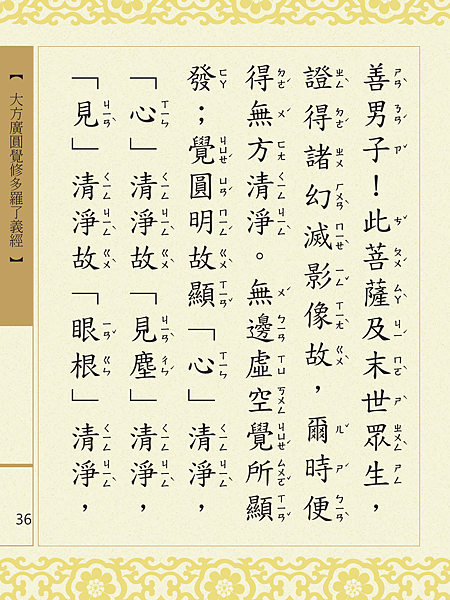 善男子！此菩薩及末世眾生，
證得諸幻滅影像故，爾時便
得無方清淨。無邊虛空覺所顯
發；覺圓明故顯「心」清淨，
「心」清淨故「見塵」清淨，
「見」清淨故「眼根」清淨，
【大方廣圓覺修多羅了義經】
36